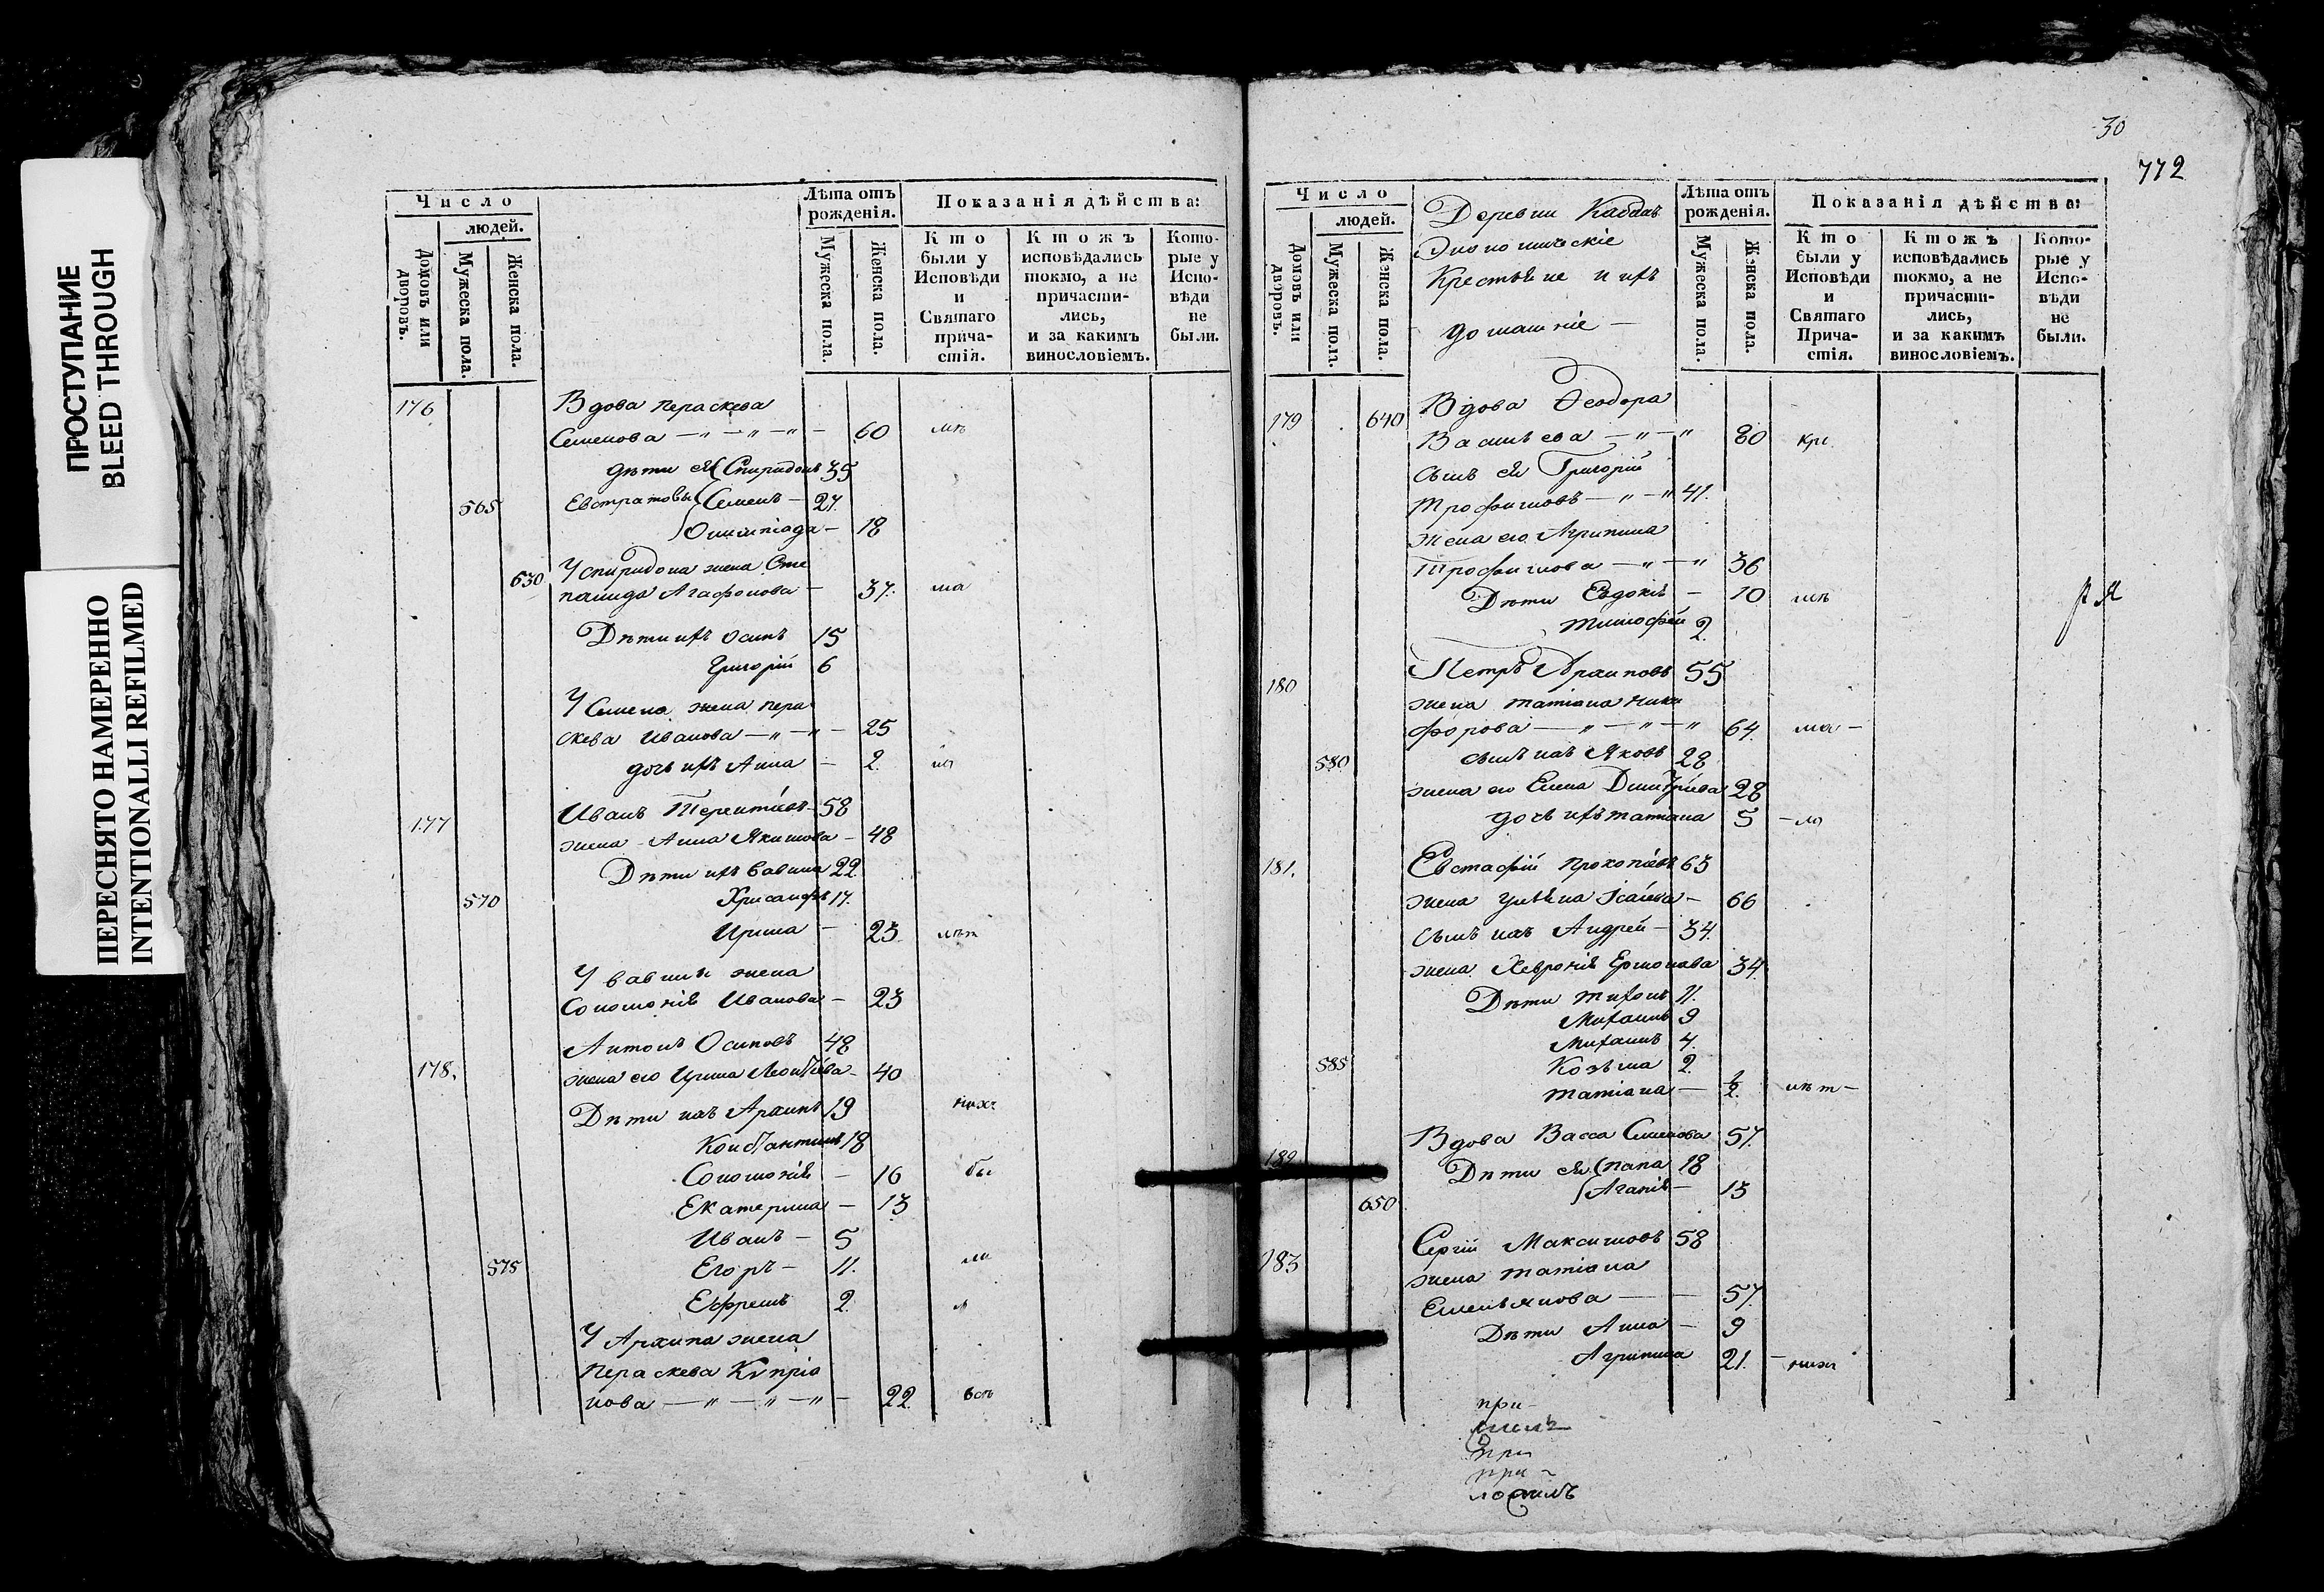 ПРОСТУПАНИЕ
BLEED THROUGH
ПЕРЕСНЯТО НАМЕРЕННО
INTENTIONALLI REFILMED
Число
людей.
Домовъ или дворовъ.
Мужеска пола.
Женска пола.
Лѣта отъ рожденія.
Мужеска пола.
Женска пола.
Показанія дѣйства:
Кто были у Исповѣди и Святаго причастія.
Ктожъ исповѣдались токмо, а не причастились, и за какимъ винословіемъ.
Которые у Исповѣди не были.
176 Вдова Пераскева
Семенова — „ — „ — „ — 60
дѣти ея Спиридонъ 35
565 Евстратовы Семенъ — 27.
Олимпіада — 18
630 У Спиридона жена Сте
панида Агафонова — 37. ша
Дѣти ихъ Осипъ 15
Григорій 6
У Семена жена Пера
скева Иванова — „ — „ — 25
дочь ихъ Анна — 2.
177 Иванъ Терентіевъ 58
жена Анна Якимова — 48
Дѣти ихъ Вавила 22
570 Хрисанфъ 17.
Ирина — 23
У Вавилы жена
Соломонія Иванова — 23
Антонъ Осиповъ 48
178. жена его Ирина Леонтіева — 40
Дѣти ихъ Архипъ 19
Константинъ 18
Соломонія — 16 бы
Екатерина — 13
Иванъ — 5
575 Егоръ — 11.
Ефремъ 2.
У Архипа жена
Пераскева Кипріа
нова — „ — „ — „ — 22
30
772
Число
людей.
Домовъ или дворовъ.
Мужеска пола.
Женска пола.
Деревни
Экономическіе
Крестьяне и ихъ
домашніе —
Лѣта отъ рожденія.
Мужеска пола.
Женска пола.
Показанія дѣйства:
Кто были у Исповѣди и Святаго Причастія.
Ктожъ исповѣдались токмо, а не причастились, и за какимъ винословіемъ.
Которые у Исповѣди не были.
179 640 Вдова Ѳеодора
Васильева — „ — „ 80
сынъ ея Григорій
Трофимовъ — „ — „ 41.
жена его Агрипина
Трофимова — „ — „ 36
Дѣти Евдокія — 10
Тимофей 2.
180 Петръ Архиповъ 55
жена Татіана Ники
форова — „ — „ — „ 64
580 сынъ ихъ Яковъ 28
жена его Елена Дмитріева 28
дочь ихъ Татіана 5
181. Евстафій Прокопіевъ 63
жена Ульяна Исаіева — 66
сынъ ихъ Андрей — 34.
жена Хевронія Ермолаева 34.
Дѣти Тихонъ 11.
Михаилъ 9
Михаилъ 4.
585 Козьма 2.
Татіана — ½
Вдова Васса Семенова 57.
182 Дѣти ея 18
650 Агапія — 13
183 Сергій Максимовъ 58
жена Татіана
Емельянова — 57.
Дѣти Анна — 9
Агрипина 21.
при-
при
при -